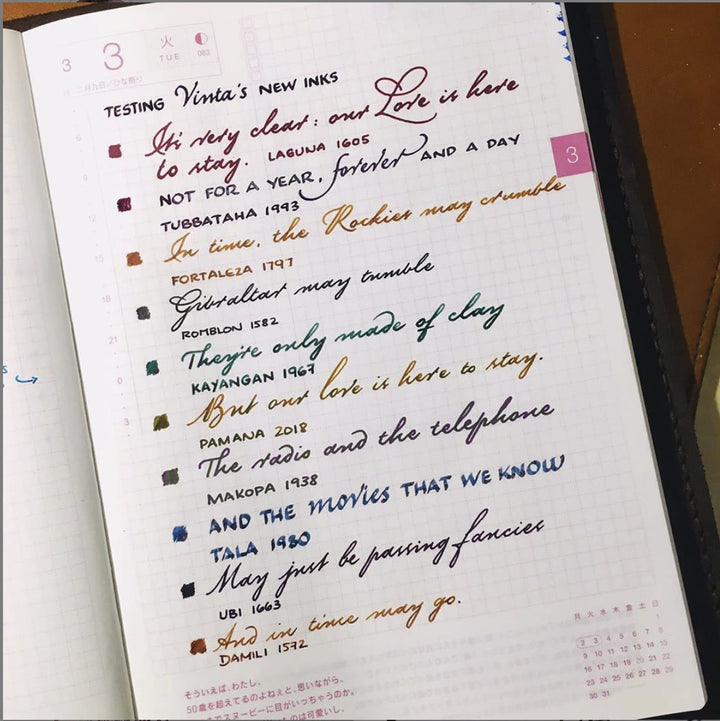 3 3 火 TUE 083
二月九日／ひな祭り
TESTING Vinta's NEW INKS
It's very clear: our Love is here
to stay. LAGUNA 1605
NOT FOR A YEAR, forever AND A DAY
TUBBATAHA 1993
In time, the Rockies may crumble
FORTALEZA 1797
Gibraltar may tumble
ROMBLON 1582
They're only made of clay
KAYANGAN 1967
But our love is here to stay.
PAMANA 2018
The radio and the telephone
MAKOPA 1938
AND THE movies THAT WE KNOW
TALA 1980
May just be passing fancies
UBI 1663
And in time may go.
DAMILI 1572
3
6
9
12
15
18
21
0
3
月 火 水 木 金 土 日
1
2 3 4 5 6 7 8
9 10 11 12 13 14 15
16 17 18 19 20 21 22
23 24 25 26 27 28 29
30 31
そういえば、わたし、
50歳を超えてるのよねぇと、思いながら、
までスヌーピーに目がいっちゃうのか。
ものは可愛いし、